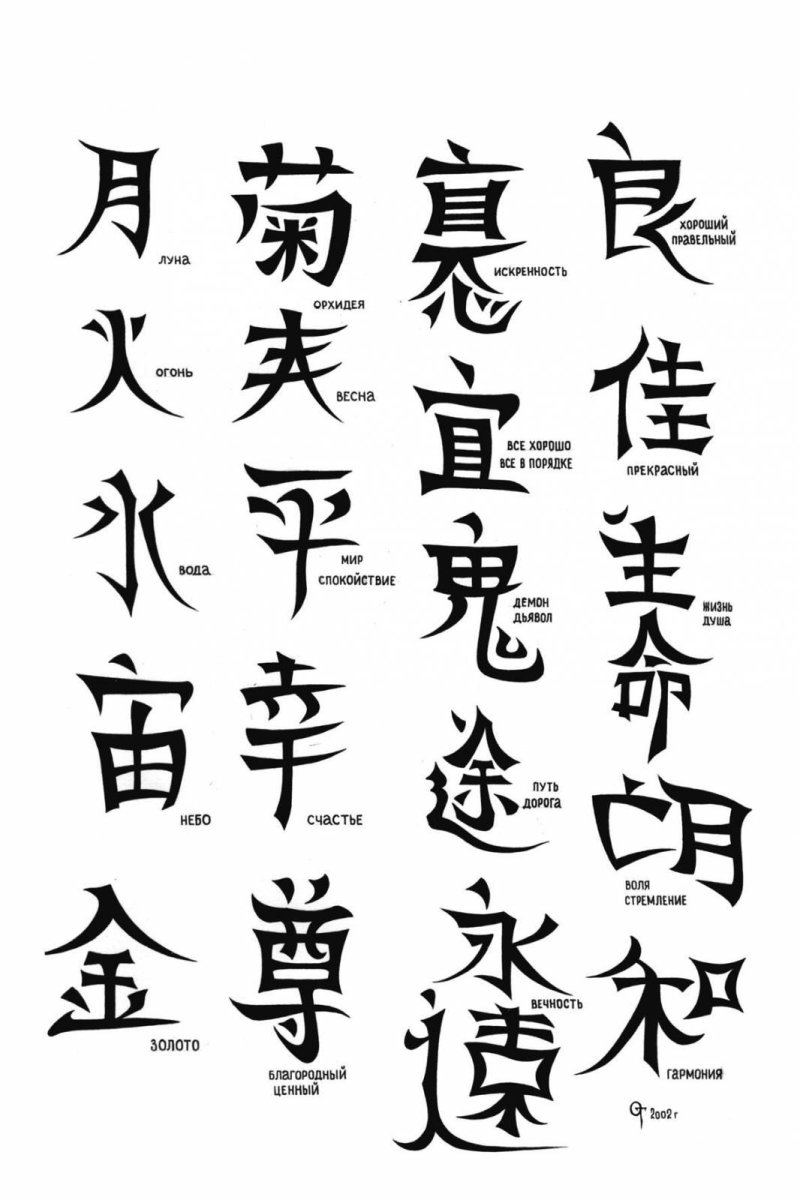 月
ЛУНА
火
ОГОНЬ
水
ВОДА
宙
НЕБО
金
ЗОЛОТО
菊
ОРХИДЕЯ
ВЕСНА
平
МИР
СПОКОЙСТВИЕ
幸
СЧАСТЬЕ
尊
БЛАГОРОДНЫЙ
ЦЕННЫЙ
ИСКРЕННОСТЬ
宜
ВСЕ ХОРОШО
ВСЕ В ПОРЯДКЕ
鬼
ДЕМОН
ДЬЯВОЛ
途
ПУТЬ
ДОРОГА
永
ВЕЧНОСТЬ
遠
良
ХОРОШИЙ
ПРАВЕЛЬНЫЙ
佳
ПРЕКРАСНЫЙ
生
ЖИЗНЬ
ДУША
命
ВОЛЯ
СТРЕМЛЕНИЕ
和
ГАРМОНИЯ
2002 г